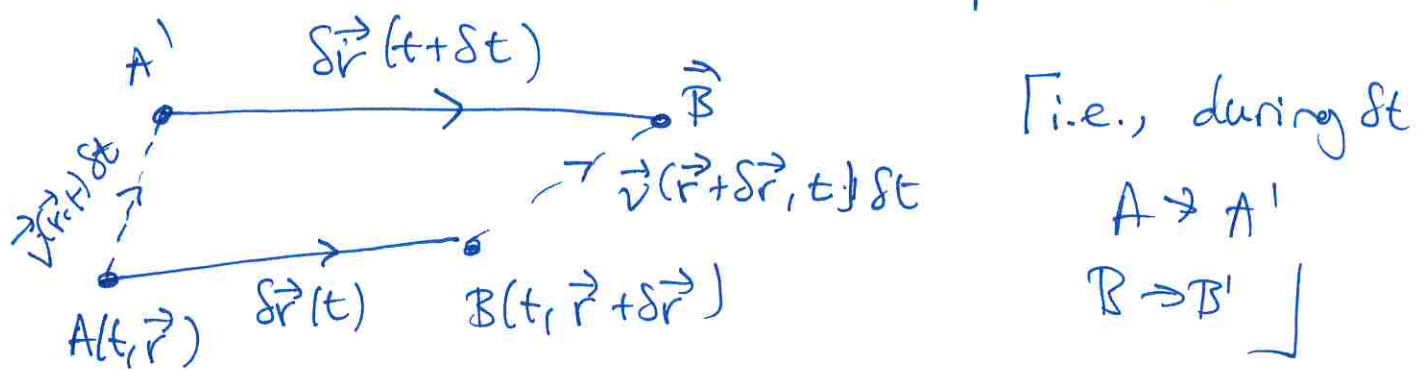 A'
δr⃗ (t+δt)
B⃗
v⃗(r⃗,t) δt
v⃗(r⃗+δr⃗, t) δt
A(t, r⃗)
δr⃗(t)
B(t, r⃗+δr⃗)
⌈i.e., during δt
A → A'
B → B' ⌋